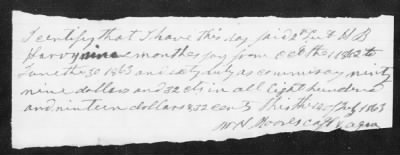 I certify that I have this day paid 2nd Lieut H B
Harvy nine months pay from Oct the 1 1862 to
June the 30 1863 and sixty as commissary ninty
nine dollars and 32 cts in all Eight hundred
and nineteen dollars & 32 cents This the 12 of July 1863
W H Moore Capt &